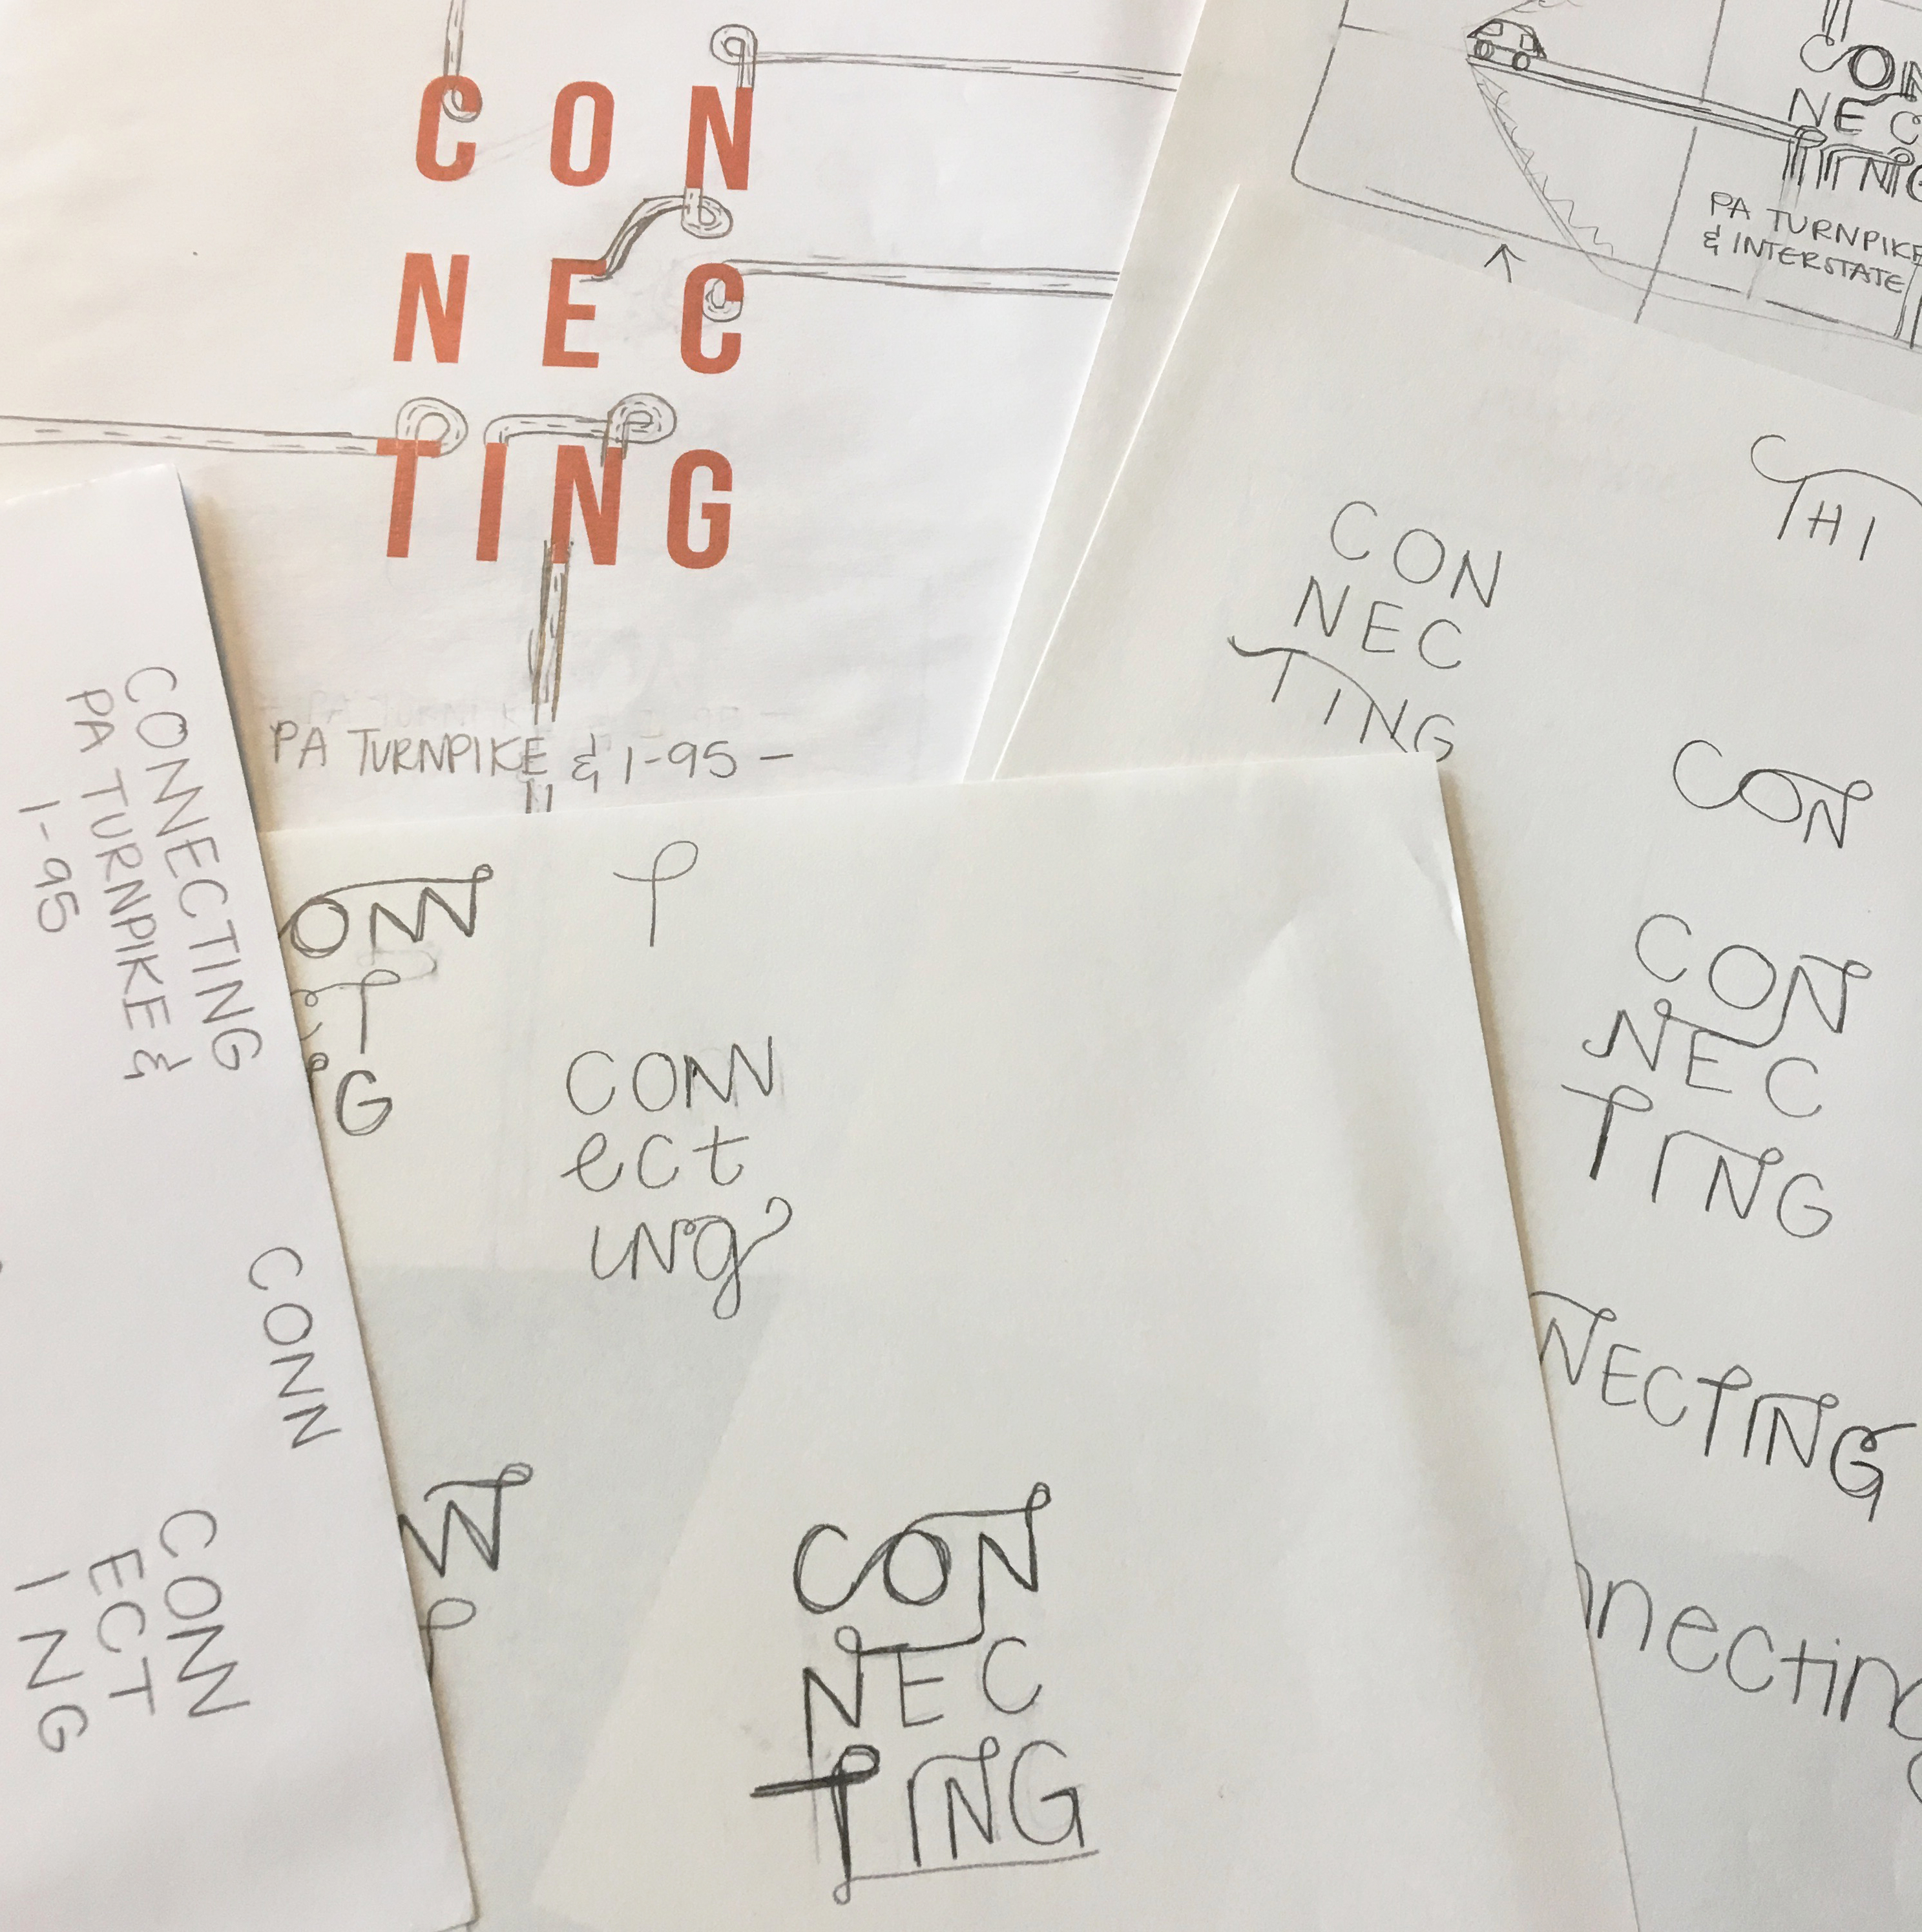 CON
NEC
TING
PA TURNPIKE & I-95 —
CON
NEC
TING
PA TURNPIKE
& INTERSTATE
THI
CON
NEC
TING
CON
CON
NEC
TING
NECTING
necting
CONNECTING
PA TURNPIKE &
I-95
CONN
CONN
ECT
ING
ONN
T
G
T
CONN
ect
ing
N
CON
NEC
TING